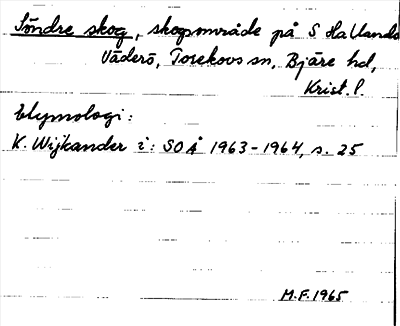 Söndre skog, skogsområde på S Hallands
Väderö, Torekovs sn, Bjäre hd,
Krist. l.
Etymologi:
K. Wijkander i: SOÅ 1963-1964, s. 25
M.F. 1965